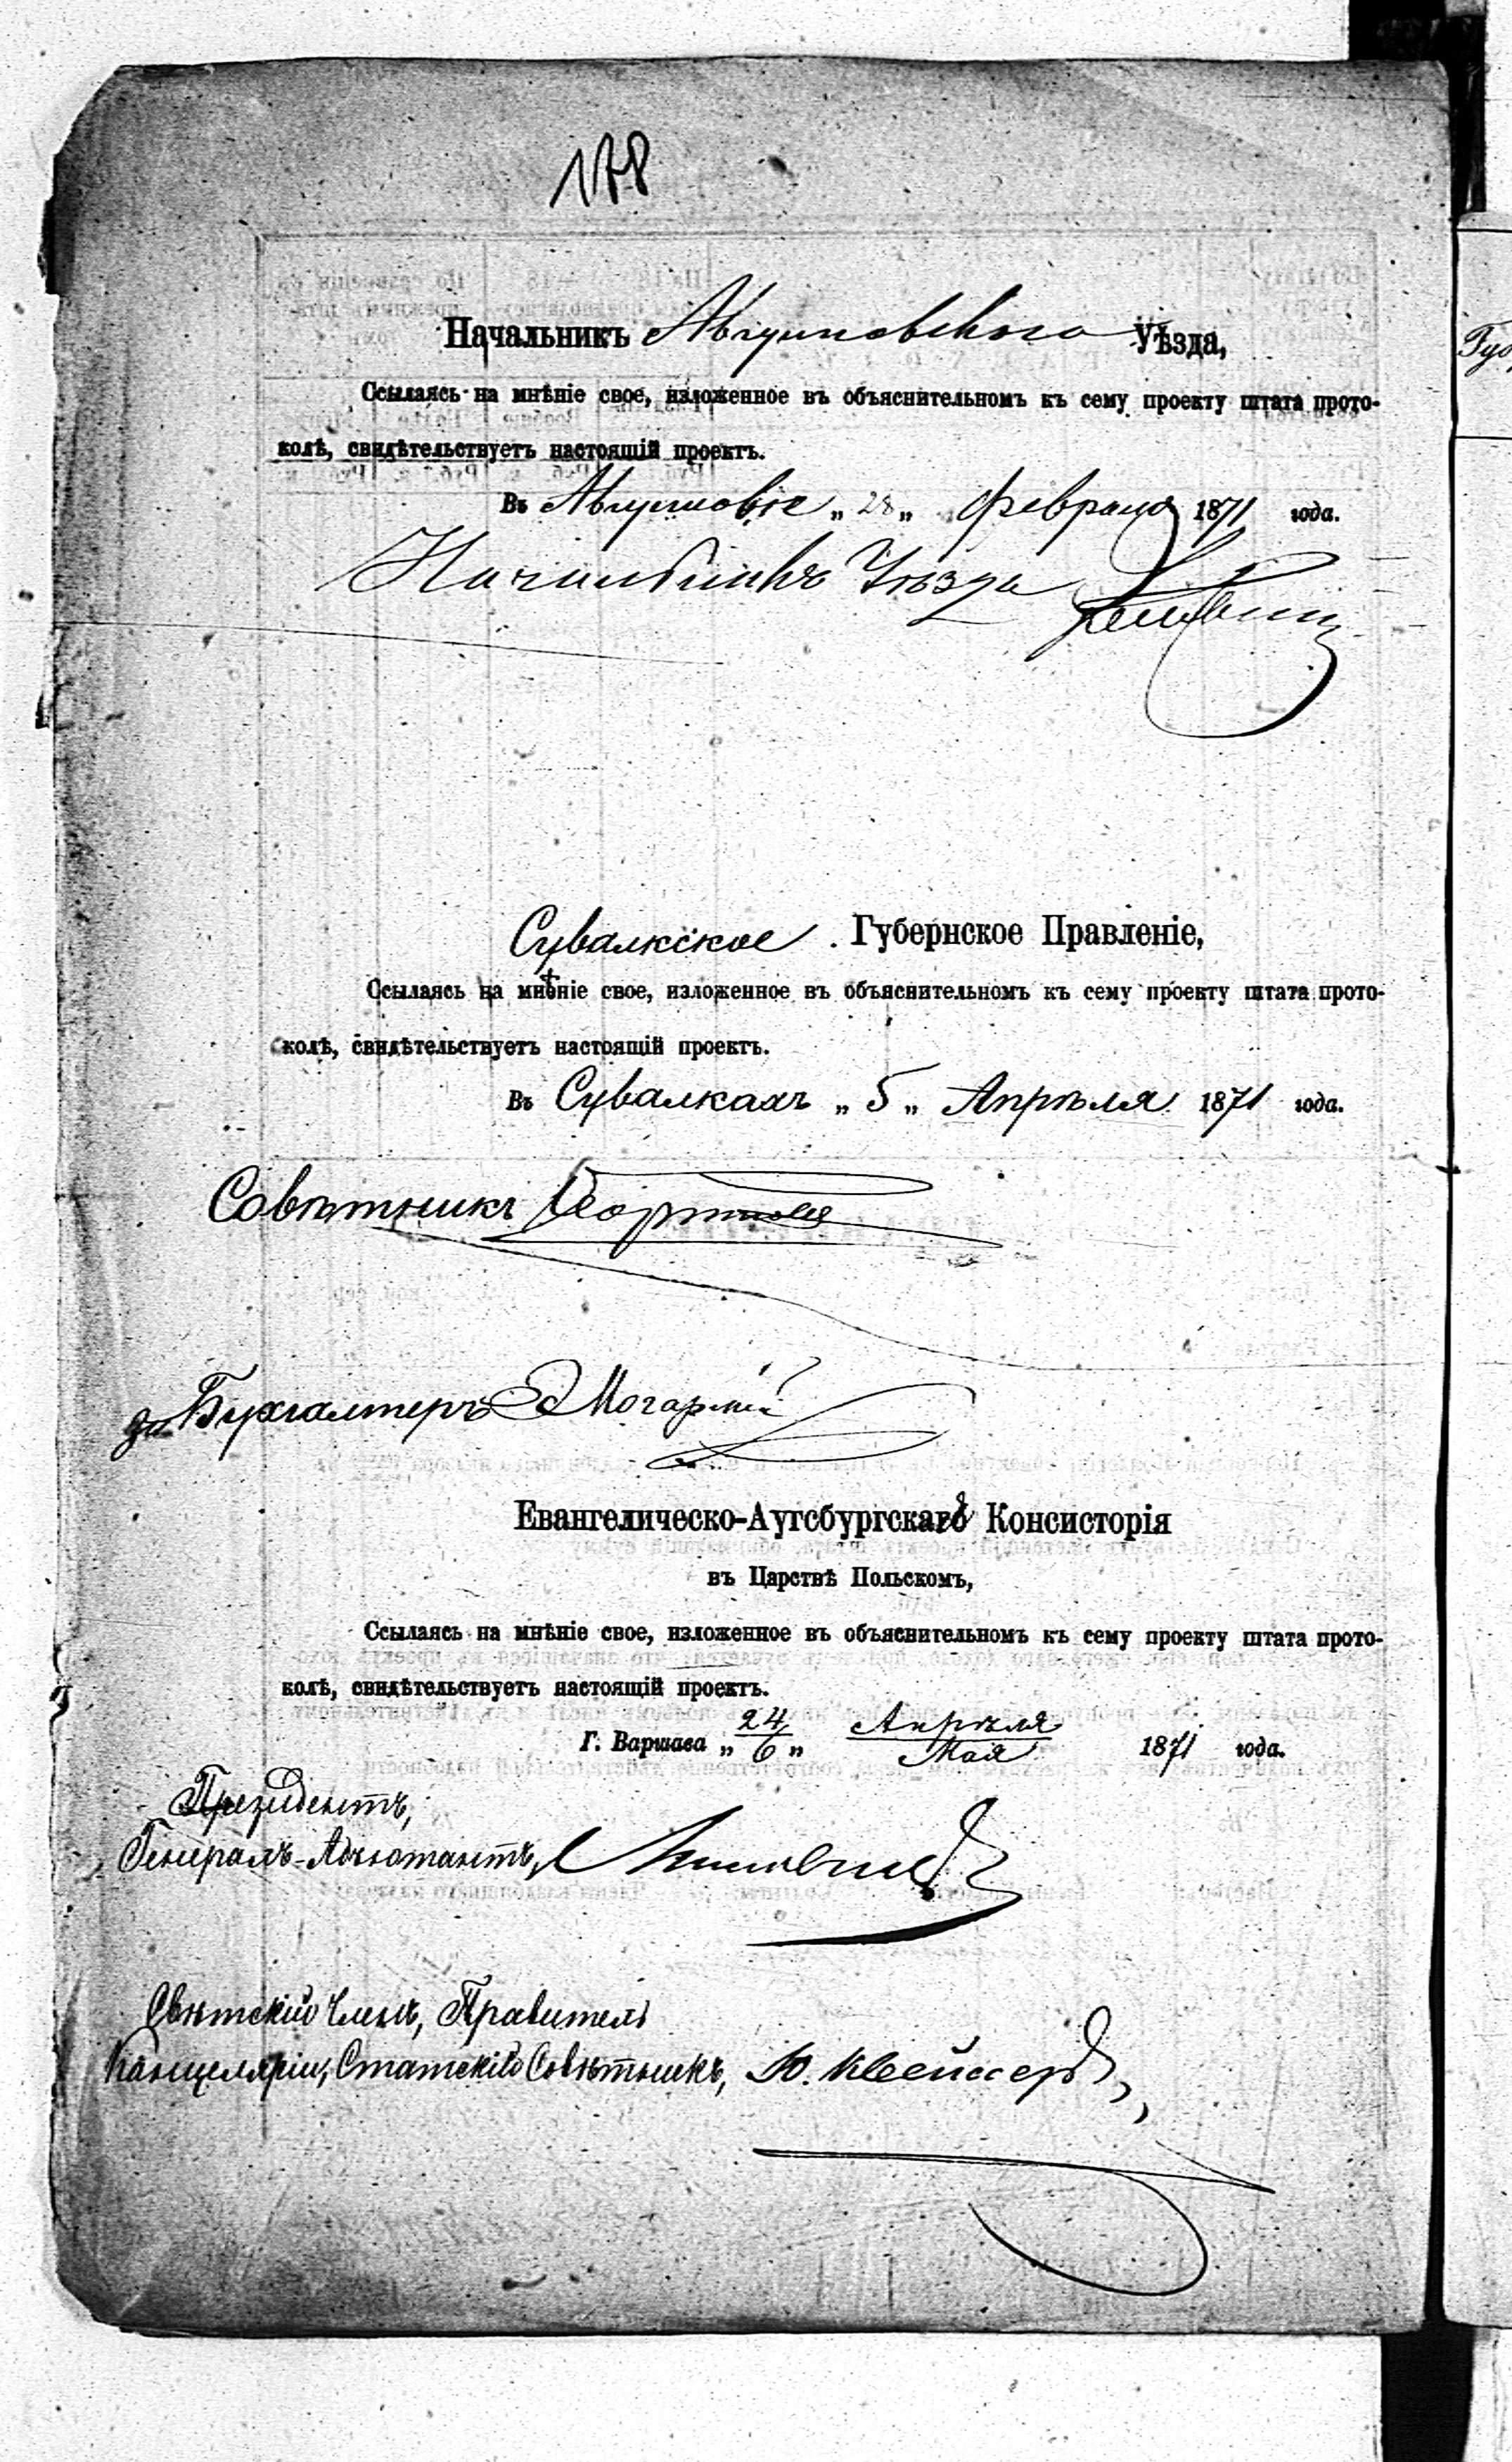 178
Начальникъ Августовскаго Уѣзда,
Ссылаясь на мнѣніе свое, изложенное въ объяснительномъ къ сему проекту штата прото-
колѣ, свидѣтельствуетъ настоящій проектъ.
Въ Августовѣ „ 28 „ февраля 1871 года.
Начальникъ Уѣзда
Сувалкское Губернское Правленіе,
Ссылаясь на мнѣніе свое, изложенное въ объяснительномъ къ сему проекту штата прото-
колѣ, свидѣтельствуетъ настоящій проектъ.
Въ Сувалкахъ „ 5 „ Апрѣля 1871 года.
Совѣтникъ
за Бухгалтеръ
Евангелическо-Аугсбургская Консисторія
въ Царствѣ Польскомъ,
Ссылаясь на мнѣніе свое, изложенное въ объяснительномъ къ сему проекту штата прото-
колѣ, свидѣтельствуетъ настоящій проектъ.
Г. Варшава „ 24/6 „ Апрѣля/Мая 1871 года.
Президентъ,
Генералъ-Адъютантъ,
Свѣтскій Членъ, Правитель
Канцеляріи, Статскій Совѣтникъ,
Губ